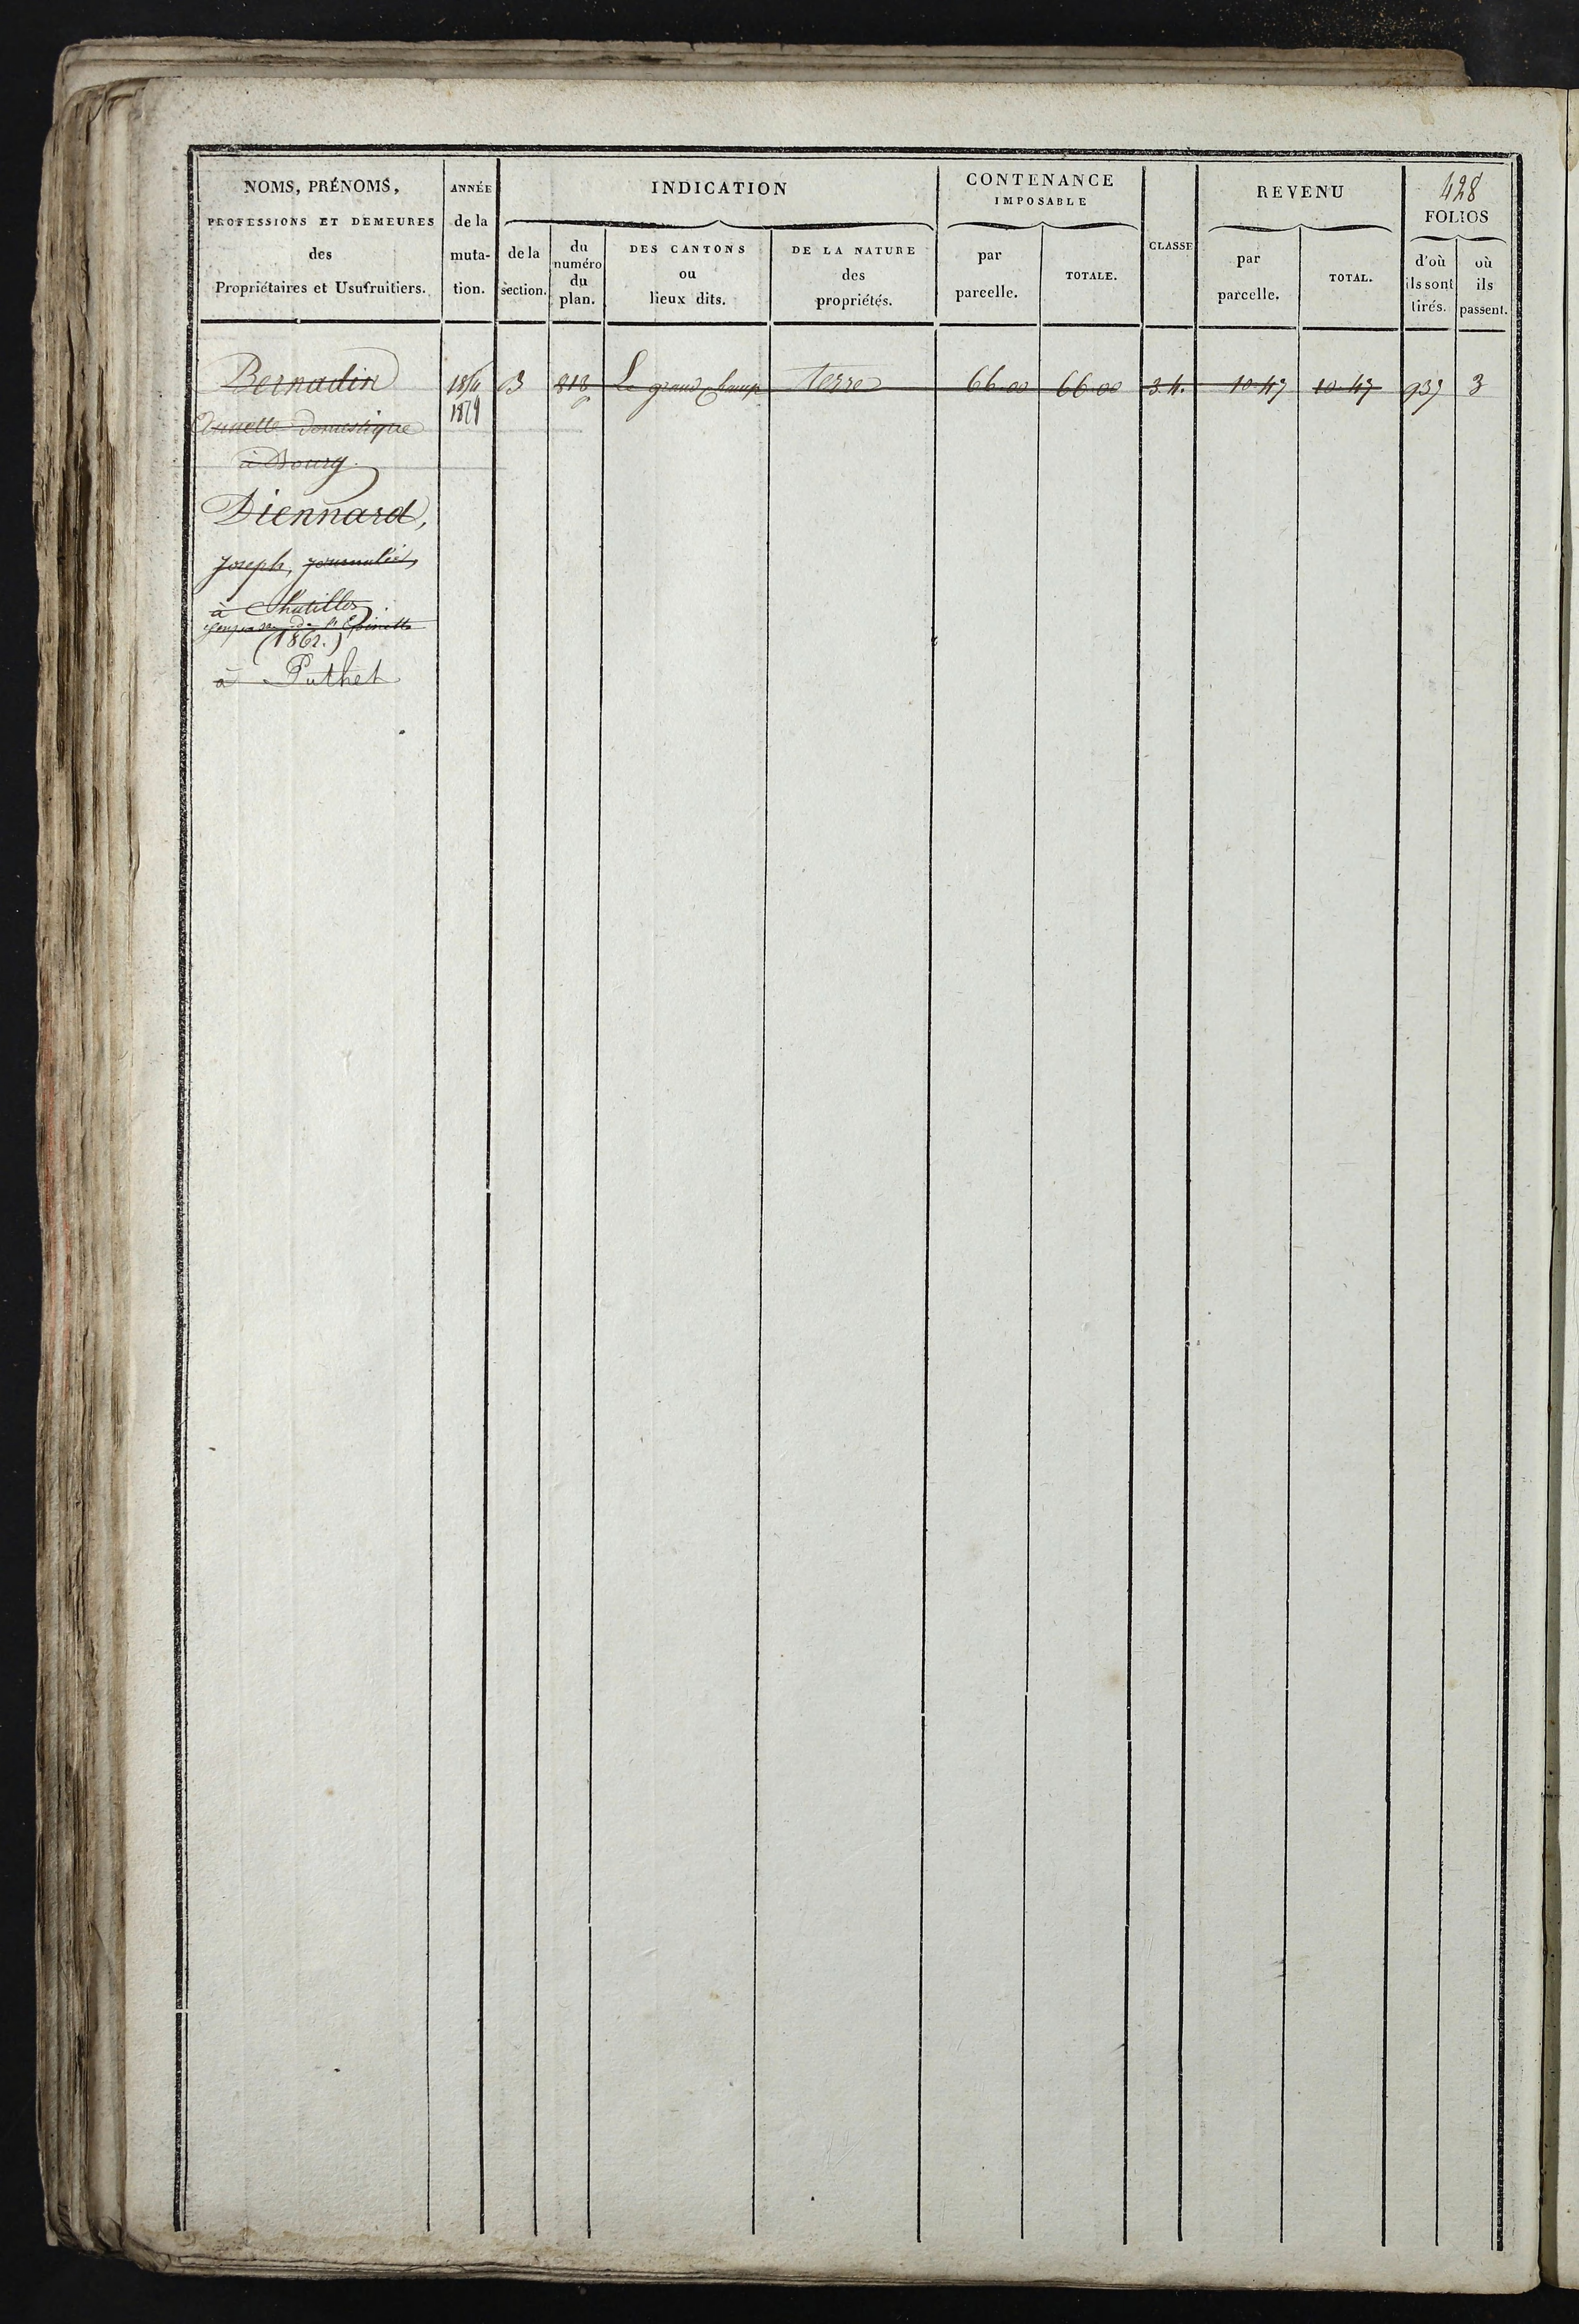 428
NOMS, PRÉNOMS,
PROFESSIONS ET DEMEURES
des
Propriétaires et Usufruitiers.
ANNÉE
de la
muta-
tion.
INDICATION
de la
section.
du
numéro
du
plan.
DES CANTONS
ou
lieux dits.
DE LA NATURE
des
propriétés.
CONTENANCE
IMPOSABLE
par
parcelle.
TOTALE.
CLASSE
REVENU
par
parcelle.
TOTAL.
FOLIOS
d'où
ils sont
tirés.
où
ils
passent.
Bernadin
domestique
à Bourg
Diennard,
Joseph, journalier,
à
(1862.)
à Puthet
B 813 Le grand Champ Terre 66.00 66.00 3.4. 10.47 10.47 937 3